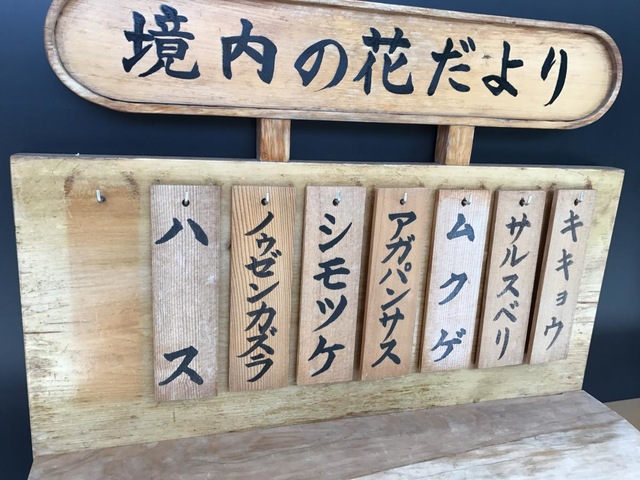 境内の花だより
キキョウ
サルスベリ
ムクゲ
アガパンサス
シモツケ
ノウゼンカズラ
ハス